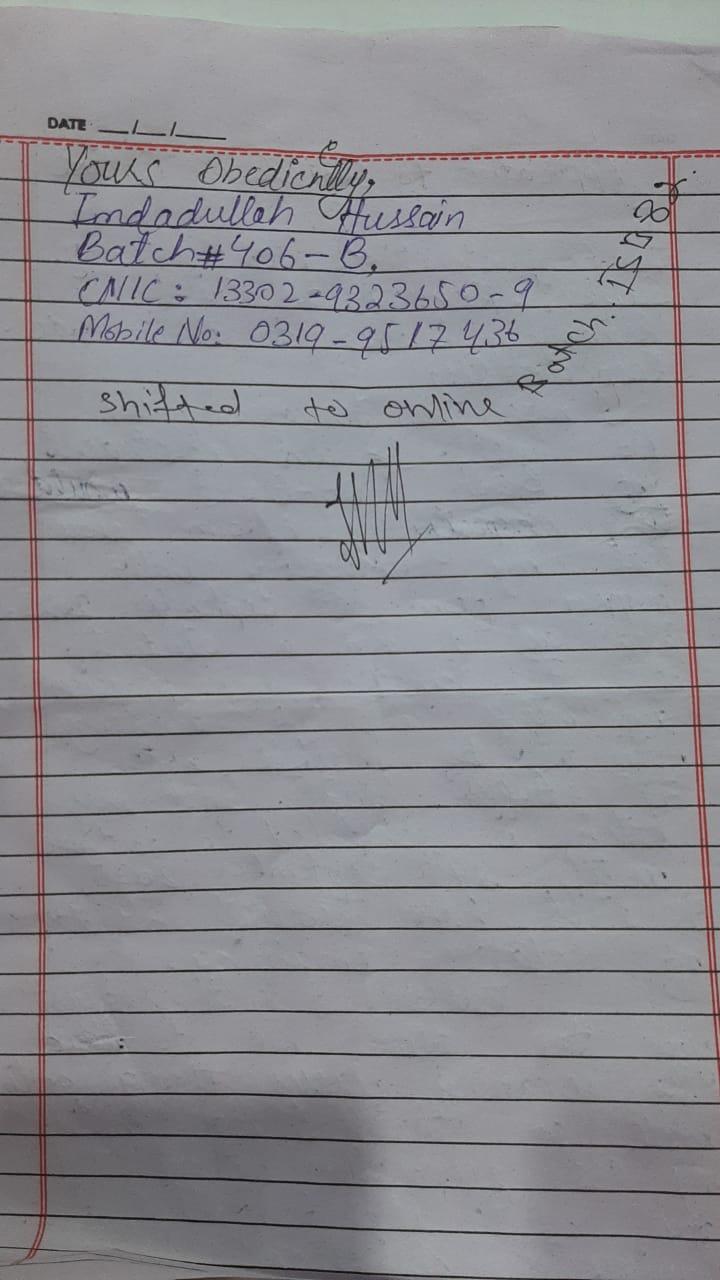 DATE __/__/__
Yours Obediently,
Imdadullah Hussain
Batch#406-B.
CNIC: 13302-9323650-9
Mobile No: 0319-9517436
Batch:
shifted to online